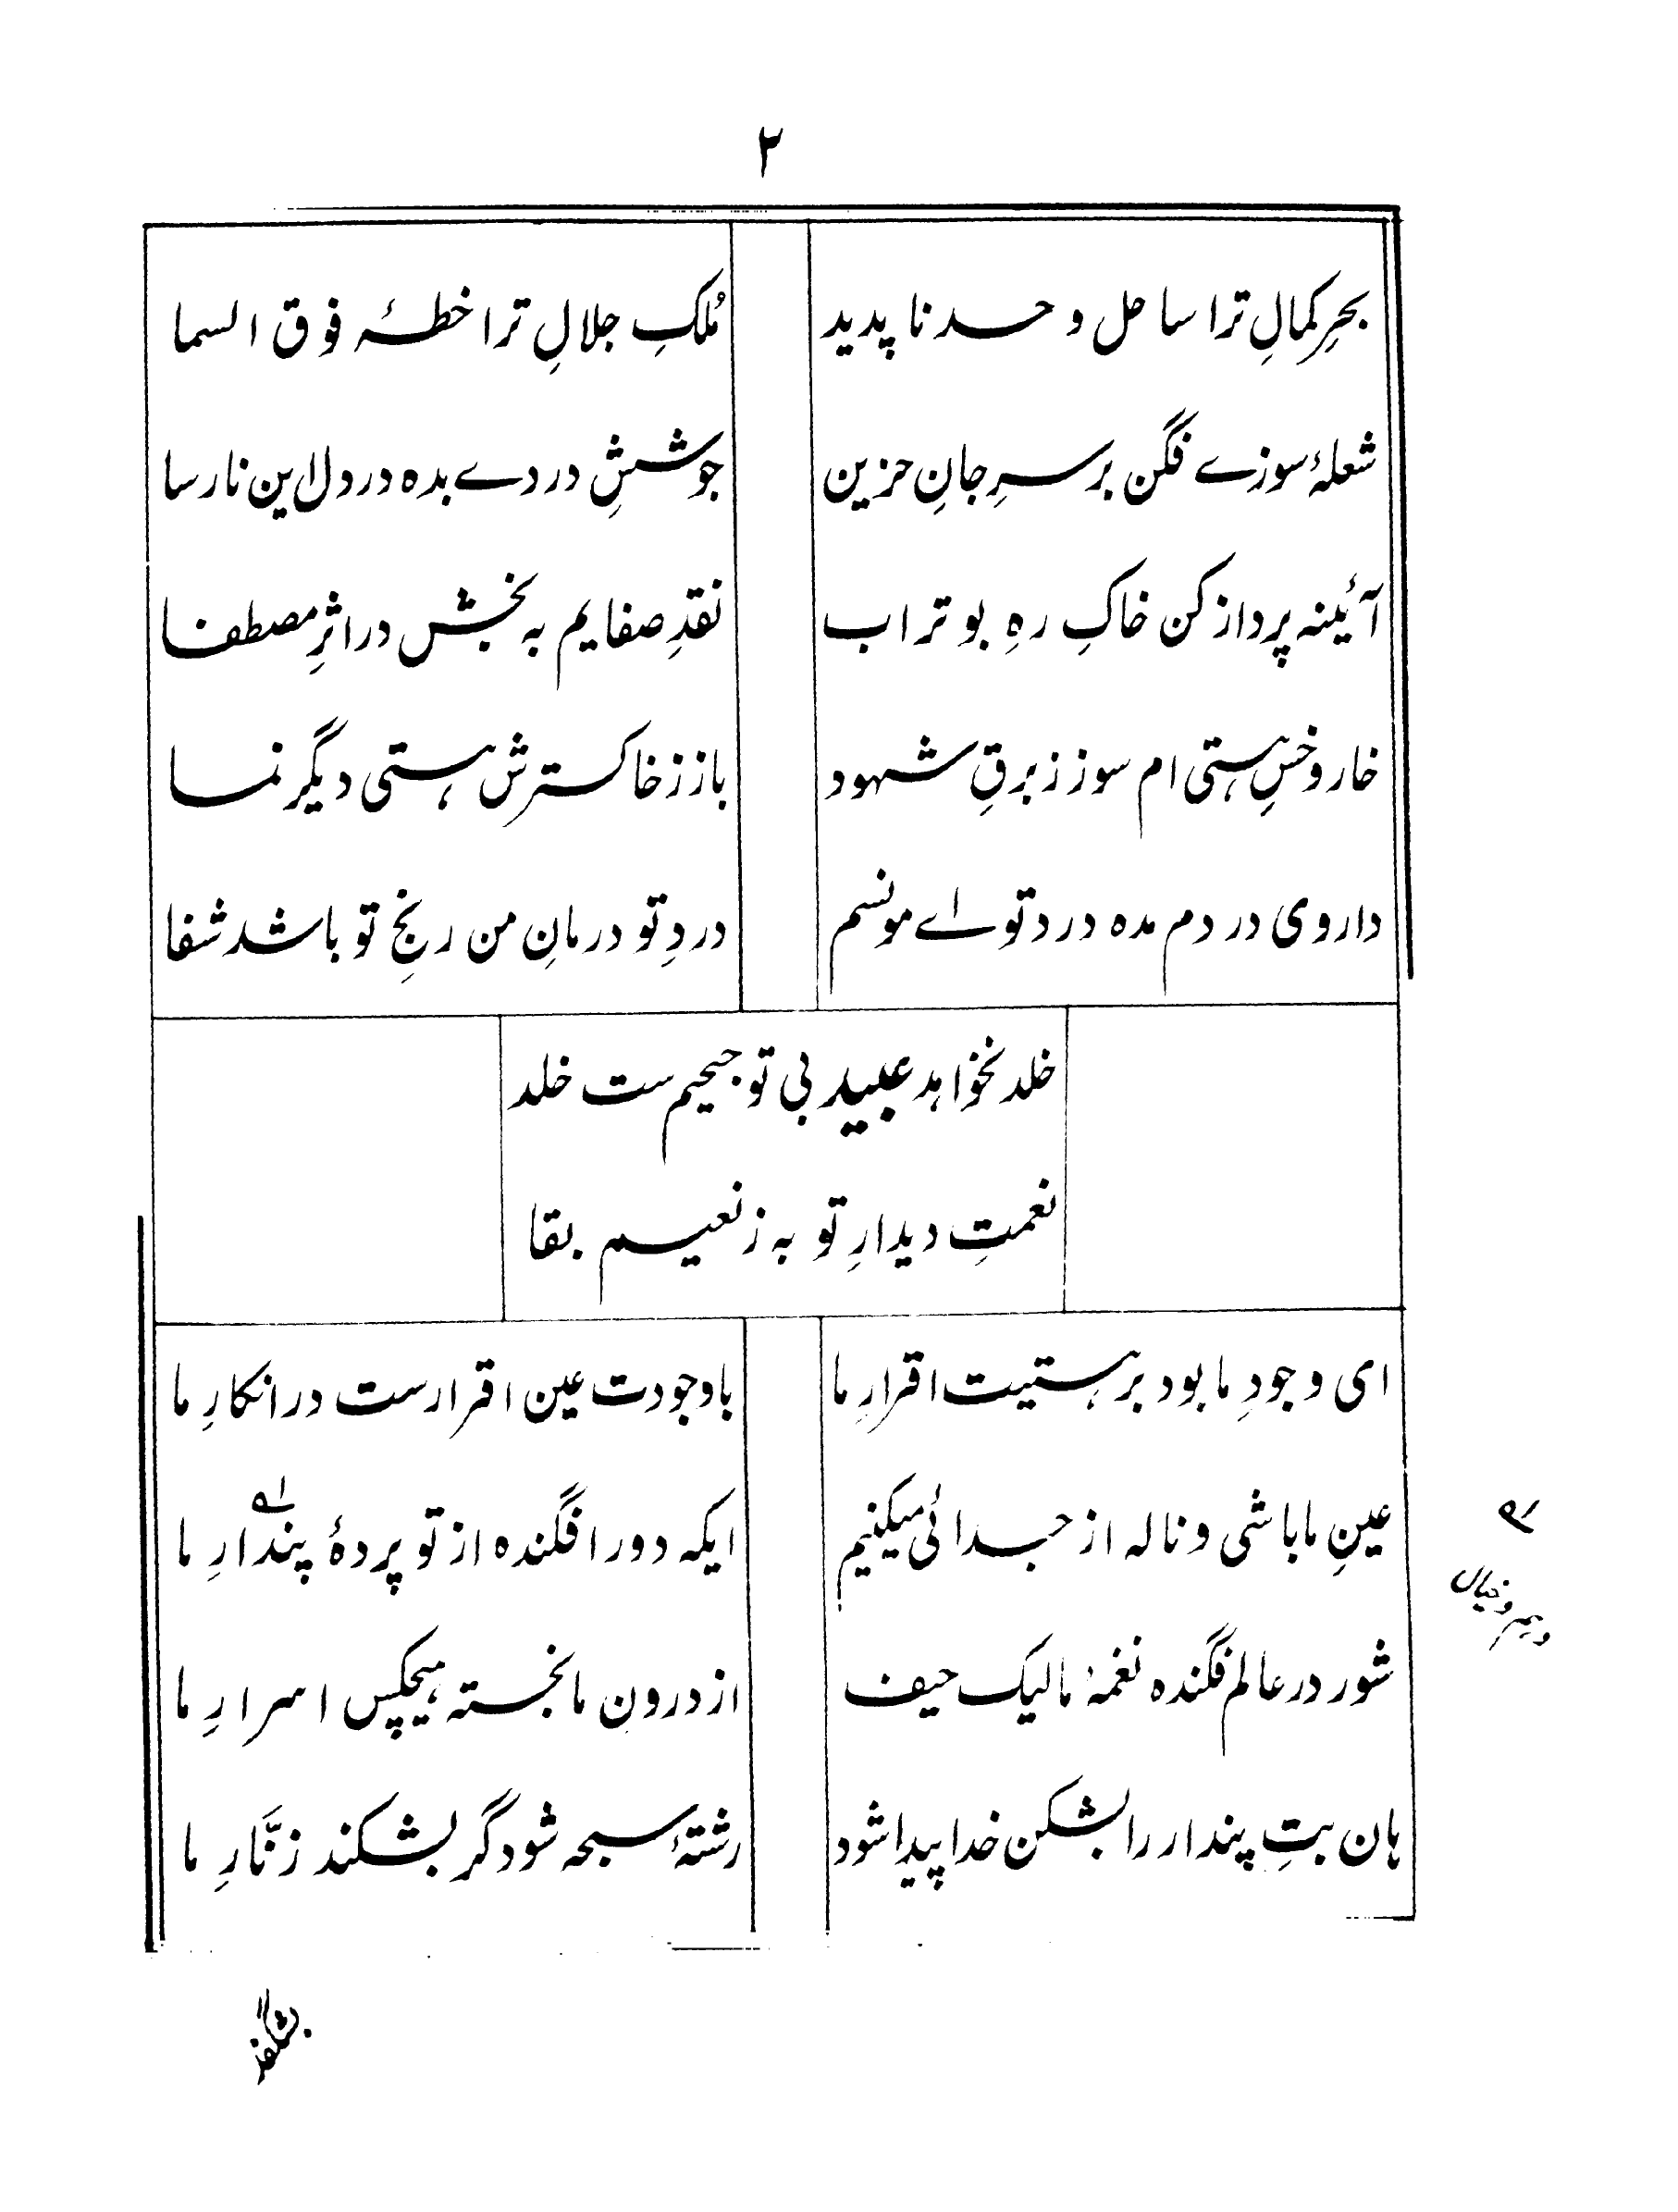 ۲
بحرِ کمالِ ترا ساحل و حد ناپدید
مُلکِ جلالِ ترا خطۂ فوق السما
شعلۂ سوزے فگن بر سرِ جانِ حزین
جوششِ دردے بده در دل این نارسا
آئینه پرداز کن خاکِ رهِ بوتراب
نقدِ صفایم به بخش در اثرِ مصطفا
خار و خسِ هستی ام سوز ز برقِ شهود
باز ز خاکسترش هستی دیگر نما
داروی دردم مده درد تو اے مونسم
دردِ تو درمانِ من رنجِ تو باشد شفا
خلد نخواهد عبید بی تو جحیم ست خلد
نعمتِ دیدارِ تو به ز نعیم بقا
ای وجودِ ما بود بر هستیت اقرارِ ما
با وجودت عین اقرارست در انکارِ ما
عینِ ما باشی و ناله از جدائی میکنیم
ایکه دور افگنده از تو پردۂ پندارِ ما
شور در عالم فگنده نغمۂ ما لیک حیف
از درونِ ما نجسته هیچکس اسرارِ ما
هان بتِ پندار را بشکن خدا پیدا شود
رشتۂ سبحه شود گر بشکند زنّارِ ما
وہم و خیال